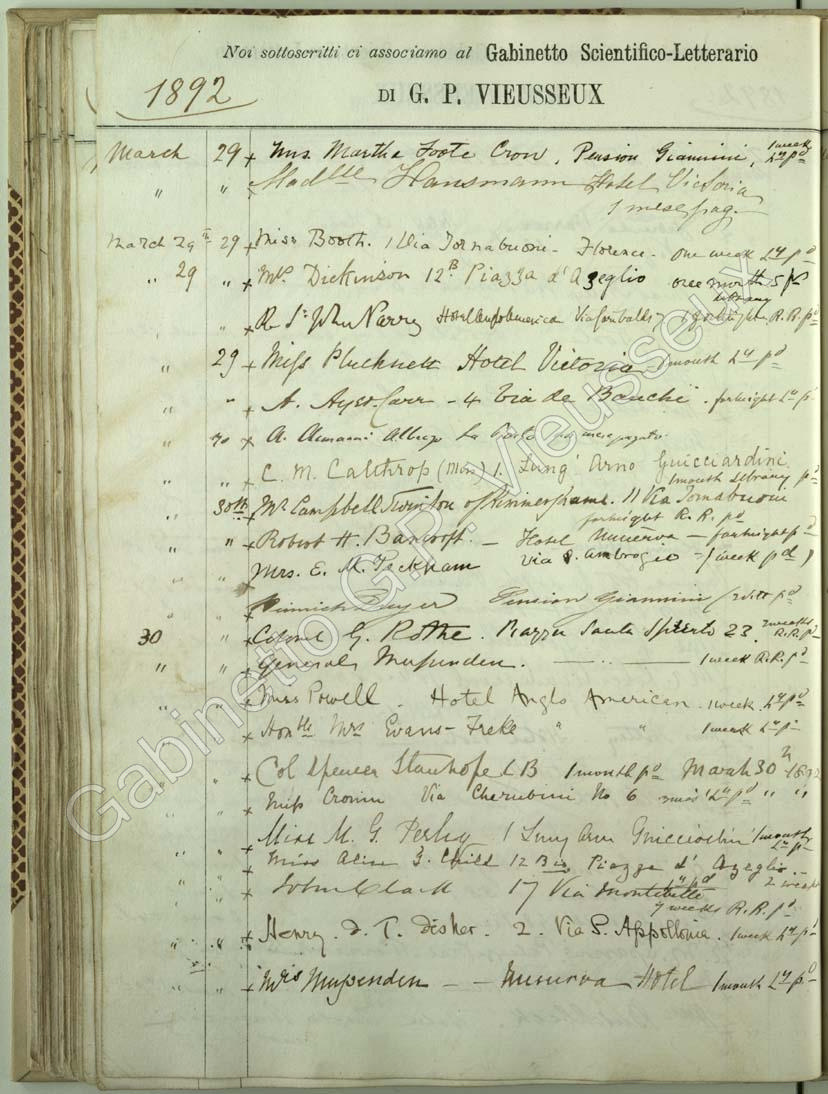 Noi sottoscritti ci associamo al Gabinetto Scientifico-Letterario
1892
DI G. P. VIEUSSEUX
March 29 Mrs. Martha Foote Crow, Pension Giannini, 1 week Ly pd
" " Madlle Hansmann Hotel Victoria
1 mese pag.
March 29th 29 Miss Booth. 1 Via Tornabuoni - Florence. one week Ly pd
" 29 " Mrs. Dickinson 12B Piazza d'Azeglio one month pd
library
" R. St John Hotel Anglo America Via Garibaldi 7 fortnight R.R. pd
" 29 Miss Plucknett Hotel Victoria 1 month Ly pd
" " A. Carr - 4 Via de Banchi. fortnight Ly pd
" 30 A. Albergo La
" " C. M. Calthrop (Mrs) 1. Lung' Arno Guicciardini
1 month Library pd
" 30th Mr Campbell Swinton of Kimmerghame. 11 Via Tornabuoni
fortnight R.R. pd
" " Robert H. Bancroft. - Hotel Minerva - fortnight pd
" " Mrs. E. M. Peckham Via S. Ambrogio - 1 week pd
" " Pension Giannini ditto pd
30 " G. Rothe. Piazza Santo Spirito 23. 2 weeks R.R. pd
" " General . - . . - 1 week R.R. pd
" " Miss Powell. Hotel Anglo American. 1 week. Ly pd
" " Honble Mrs Evans-Freke " " 1 week Ly pd
" " Col Spencer Stanhope CB 1 month pd March 30th 1892
" " Miss Cronin Via Cherubini No 6 Ly pd " "
" " Miss M. G. 1 Lung Arno Guicciardini 1 month Ly pd
" " Miss Alice Child 12 Bis Piazza d'Azeglio.
" " John Clark 17 Via Montebello Ly pd 2 weeks
weeks R.R. pd
" " Henry. D. T. Disher. 2. Via S. Appollonia. 1 week Ly pd
" " Mrs - - Minerva Hotel 1 month Ly pd
Gabinetto G.P. Vieusseux